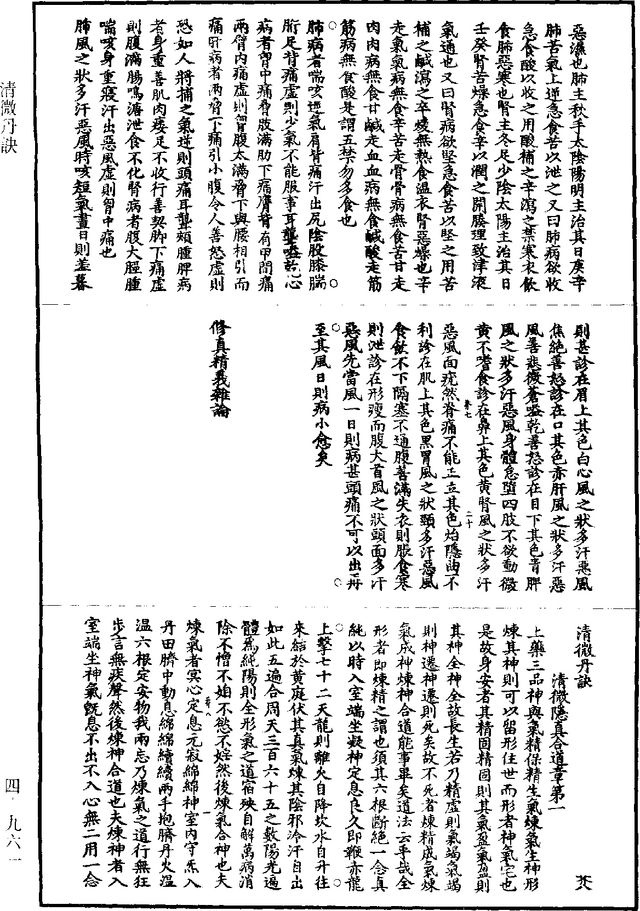 惡濕也肺主秋手太陰陽明主治其日庚辛
肺苦氣上逆急食苦以泄之又曰肺病欲收
急食酸以收之用酸補之辛瀉之禁寒衣飲
食肺惡寒也腎主冬足少陰太陽主治其日
壬癸腎苦燥急食辛以潤之開腠理致津液
氣通也又曰腎病欲堅急食苦以堅之用苦
補之鹹瀉之卒煖無熱食溫衣腎惡燥也辛
走氣氣病無食辛苦走骨骨病無食苦甘走
肉肉病無食甘鹹走血血病無食鹹酸走筋
筋病無食酸是謂五禁勿多食也
肺病者喘咳逆氣肩背痛汗出尻陰股膝腨
胻足皆痛虛則少氣不能服事耳聾嗌乾心
病者胷中痛脅肢滿肋下痛膺背肩甲間痛
兩臂內痛虛則胷腹大滿脅下與腰相引而
痛肝病者兩脅下痛引小腹令人善怒虛則
恐如人將捕之氣逆則頭痛耳聾頰腫脾病
者身重善肌肉痿足不收行善契脚下痛虛
則腹滿腸鳴溏泄食不化腎病者腹大脛腫
喘咳身重寢汗出惡風虛則胷中痛也
肺風之狀多汗惡風時咳短氣晝日則差暮
則甚診在眉上其色白心風之狀多汗惡風
焦絕善怒診在口其色赤肝風之狀多汗惡
風善悲微蒼嗌乾善怒診在目下其色青脾
風之狀多汗惡風身體怠墮四肢不欲動微
黃不嗜食診在鼻上其色黃腎風之狀多汗
卷七 二十
惡風面痝然脊痛不能正立其色炲隱曲不
利診在肌上其色黑胃風之狀頸多汗惡風
食飲不下隔塞不通腹善滿失衣則脹食寒
則泄診在形瘦而腹大首風之狀頭面多汗
惡風先當風一日則病甚頭痛不可以出至
其風日則病小愈矣
修真精義雜論
清微丹訣 光
清微隱真合道章第一
上藥三品神與氣精保精生氣煉氣生神形
煉其神則可以留形住世而形者神氣宅也
是故身安者其精固精固則其氣盈氣盈則
其神全神全故長生若乃精虛則氣竭氣竭
則神遷神遷則死矣故不死者煉精成氣煉
氣成神煉神合道能事畢矣道法云乎哉全
形者即煉精之謂也須其六根斷絕一念真
純以時入室端坐凝神定息良久即鞭赤龍
上擊七十二天龍則離火自降坎水自升往
來結於黃庭伏其真氣煉其陰邪泠汗自出
如此五遍合周天三百六十五之數陽光遍
體爲純陽則全形氣之道宿殃自解萬病消
除不憎不妬不慾不婬然後煉氣合神也夫
煉氣者冥心定息元寂綿綿神室內守炁入
丹田臍中動息綿綿續續兩手抱臍丹火溫
溫六根定安物我兩忘乃煉氣之道行無狂
步言無疾聲然後煉神合道也夫煉神者入
室端坐神氣既息不出不入心無二用一念
清微丹訣
四·九六一